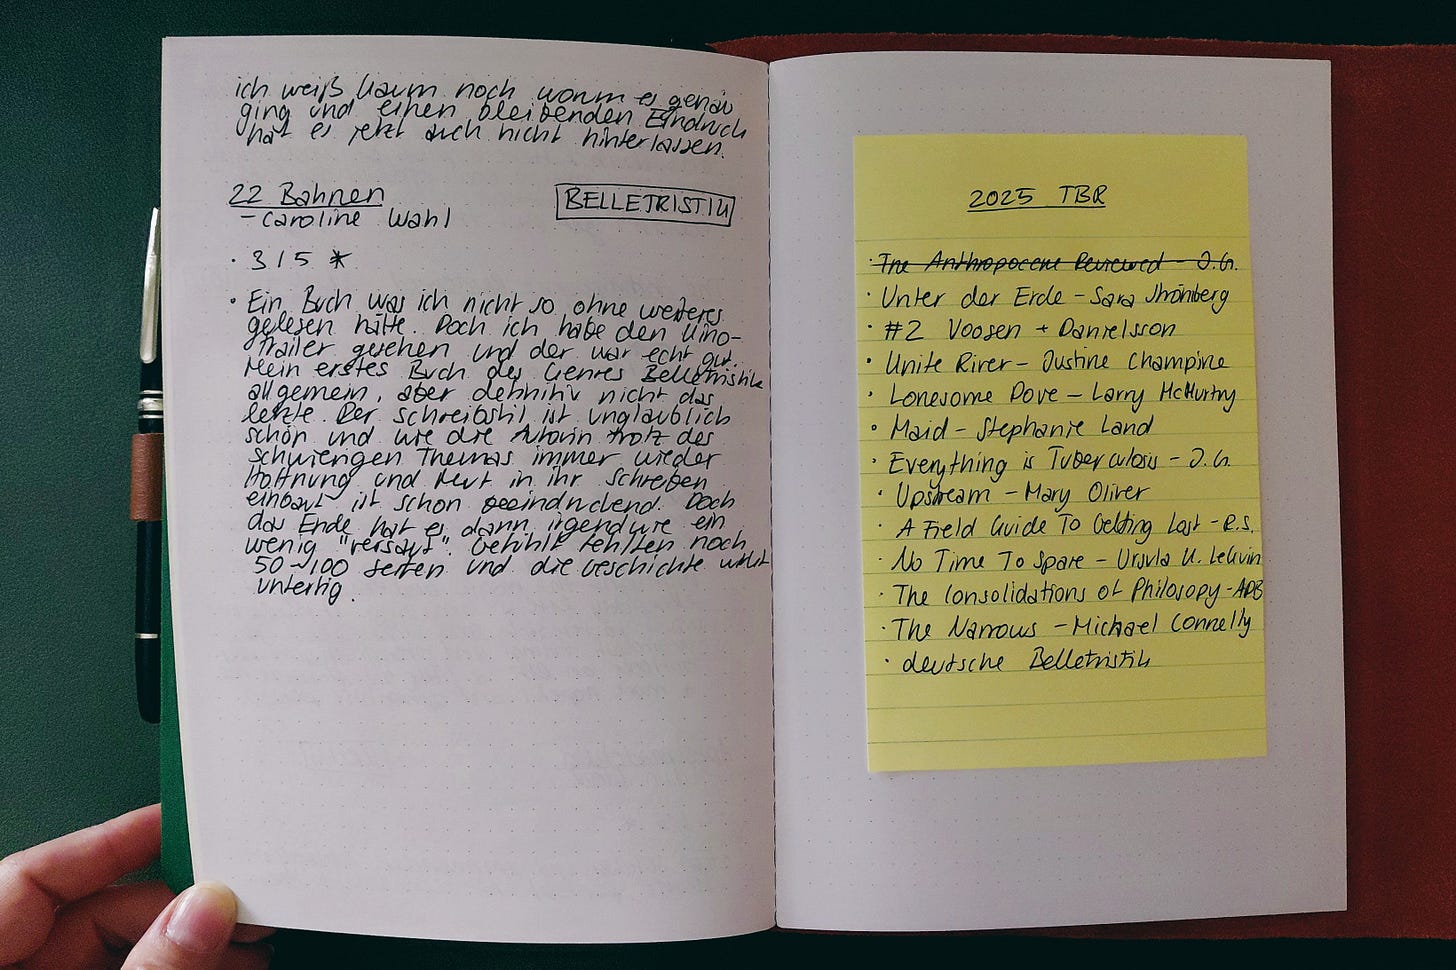 ich weiß kaum noch worum es genau
ging und einen bleibenden Eindruck
hat es jetzt auch nicht hinterlassen.
22 Bahnen
- Caroline Wahl
BELLETRISTIK
· 3/5 *
· Ein Buch was ich nicht so ohne weiteres
gelesen hätte. Doch ich habe den Kino-
trailer gesehen und der war echt gut.
Mein erstes Buch des Genres Belletristik
allgemein, aber definitiv nicht das
letzte. Der Schreibstil ist unglaublich
schön und wie die Autorin trotz des
schwierigen Themas immer wieder
Hoffnung und Mut in ihr Schreiben
einbaut ist schon beeindruckend. Doch
das Ende hat es dann irgendwie ein
wenig "versaut". Gefühlt fehlten noch
50-100 Seiten und die Geschichte wirkt
unfertig.
2025 TBR
· The Anthropocene Reviewed - J.G.
· Unter der Erde - Sara
· #2 Voosen + Danielsson
· Unite River - Justine Champine
· Lonesome Dove - Larry McMurtry
· Maid - Stephanie Land
· Everything is Tuberculosis - J.G.
· Upstream - Mary Oliver
· A Field Guide To Getting Lost - R.S.
· No Time To Spare - Ursula K. LeGuin
· The Consolidations of Philosopy - ADB
· The Narrows - Michael Connelly
· deutsche Belletristik